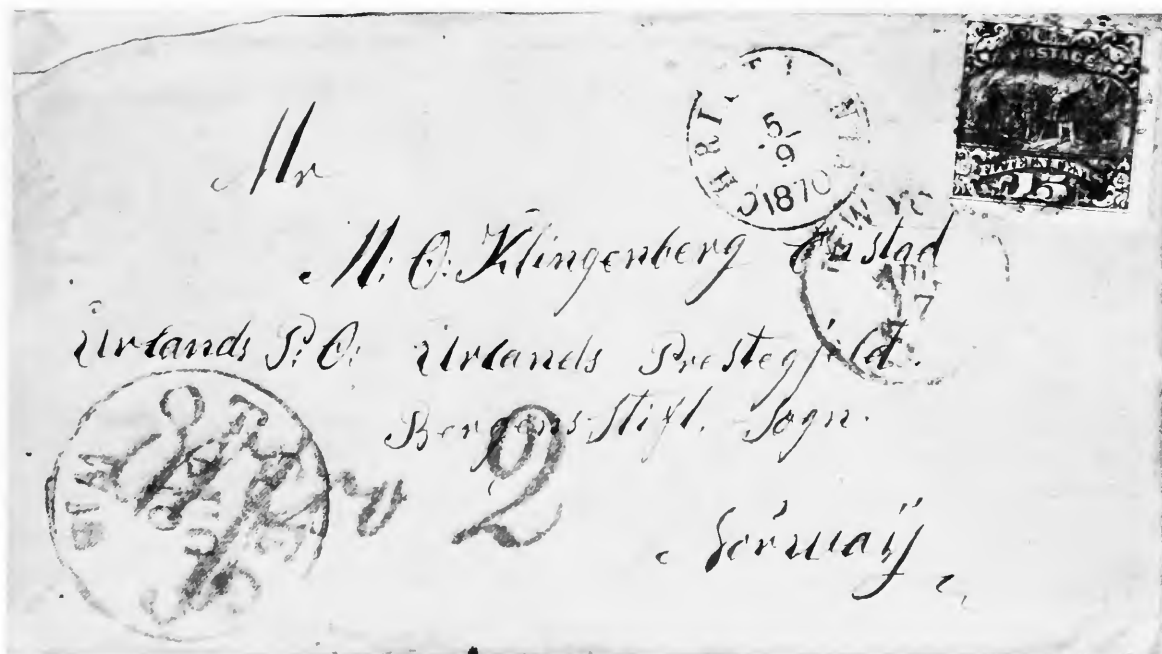 U.S. POSTAGE
FIFTEEN CENTS
15
5/9
1870
NEW YO
AUG
17
Mr
M: O: Klingenberg Onstad
Urlands P: O: Urlands Prestegjeld.
Bergens Stift. Sogn.
Norway
2